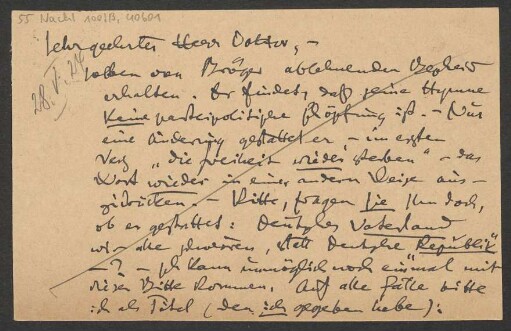 55 Nachl 100/B, 40601
Sehr geehrter Herr Doktor, –
28. V. 24
soeben von Bröger ablehnenden Bescheid
erhalten. Er findet, daß seine Hymne
keine parteipolitische Schöpfung ist. – Nur
eine Änderung gestattet er – im ersten
Vers „die Freiheit wieder sterben“ – das
Wort wieder in einer andern Weise aus-
zudrücken. – Bitte, fragen Sie ihn doch,
ob er gestattet: Deutsches Vaterland
wir alle schwören, statt Deutsche Republik“
– ? – Ich kann unmöglich noch einmal mit
dieser Bitte kommen. Auf alle Fälle bitte
ich als Titel (den ich gegeben habe):